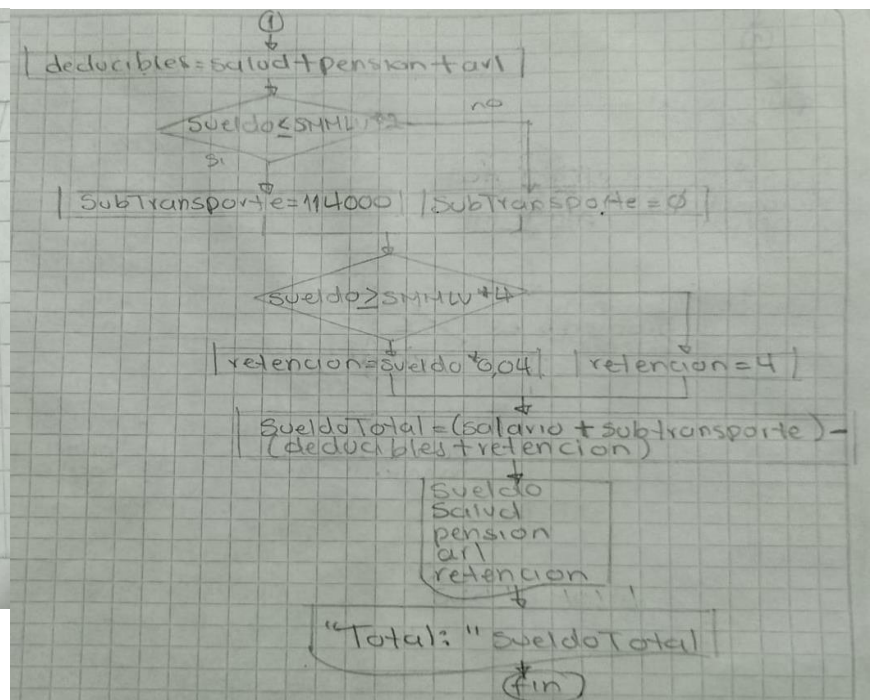 1
deducibles=salud+pension+arl
no
Sueldo≤SMMLV*2
Si
SubTransporte=114000 SubTransporte=∅
sueldo≥SMMLV*4
retencion=sueldo*0,04 retencion=4
sueldoTotal=(salario+subtransporte)-
(deducibles+retencion)
sueldo
salud
pension
arl
retencion
"Total:" sueldoTotal
fin